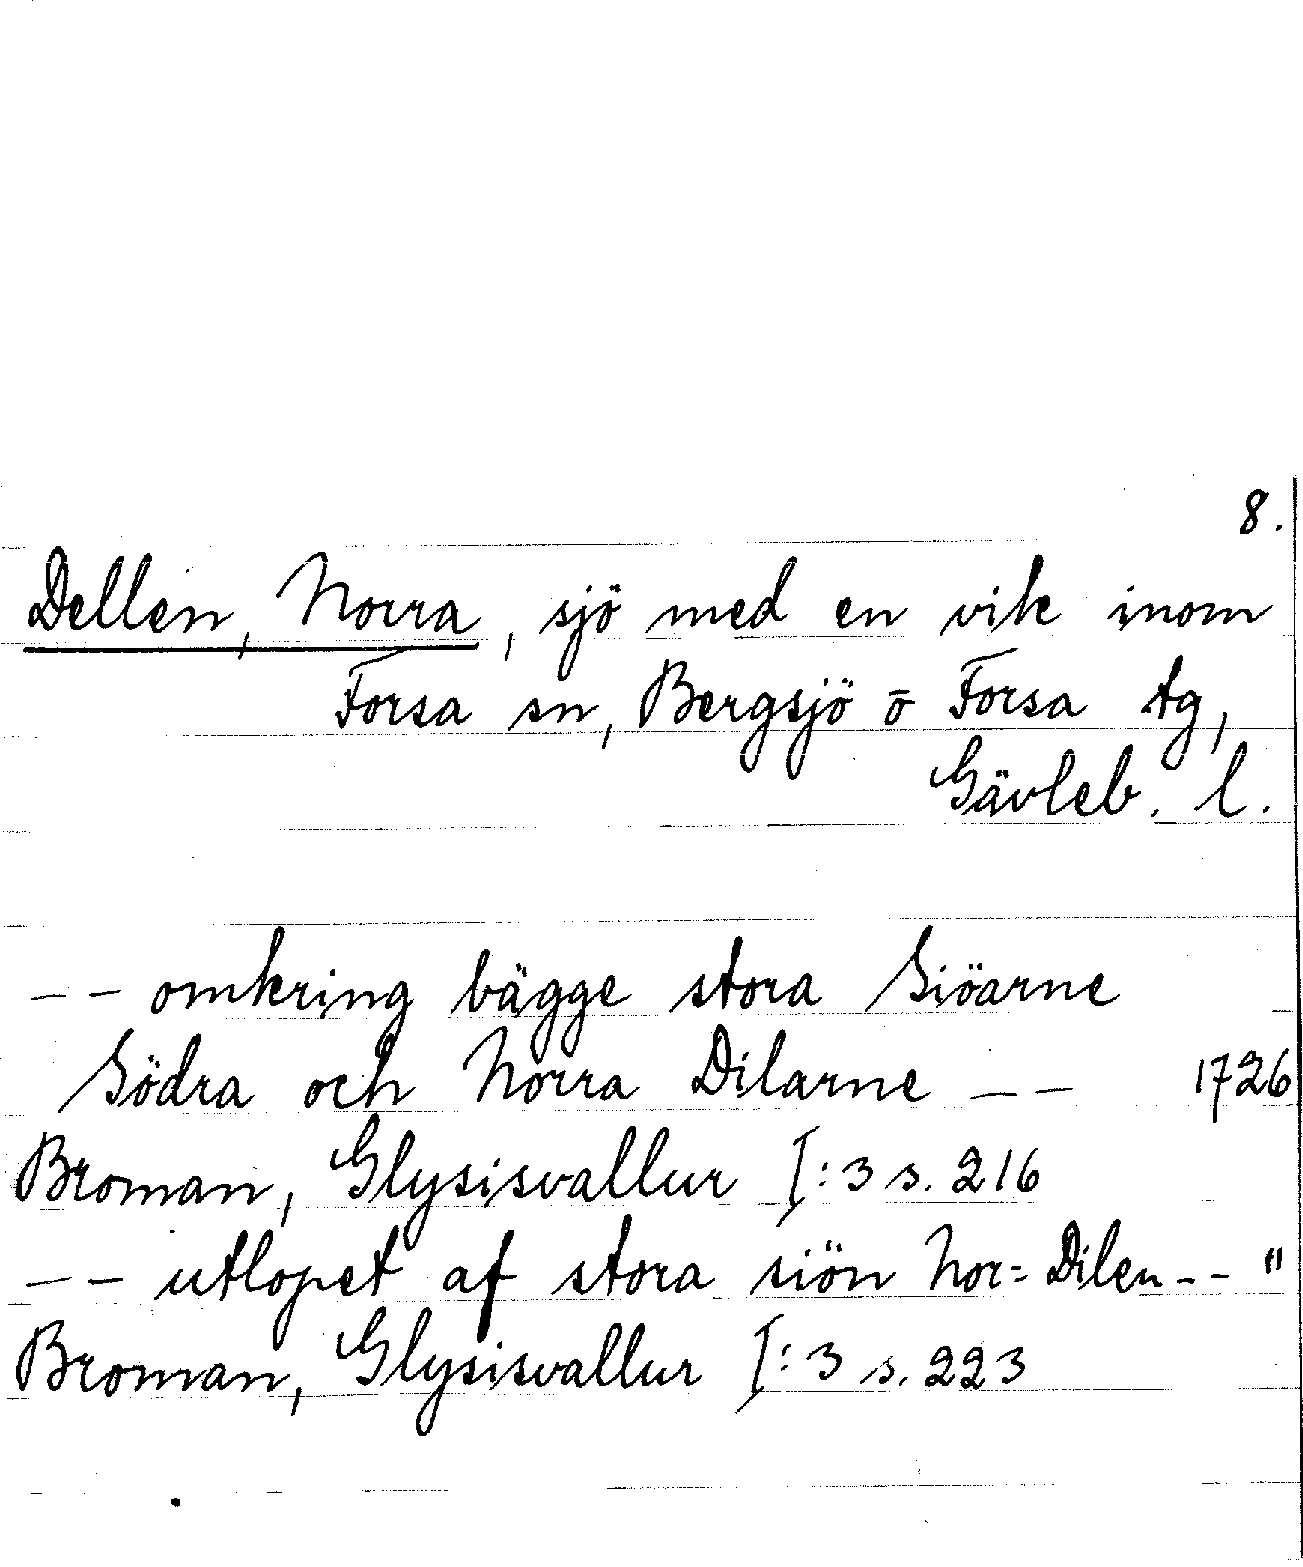 8.
Dellen, Norra, sjö med en vik inom
Forsa sn, Bergsjö o Forsa tg,
Gävleb. l.
-- omkring bägge stora Siöarne
Södra och Norra Dilarne -- 1726
Broman, Glysisvallur I:3 s. 216
-- utlopet af stora siön Nor= Dilen -- "
Broman, Glysisvallur I:3 s. 223